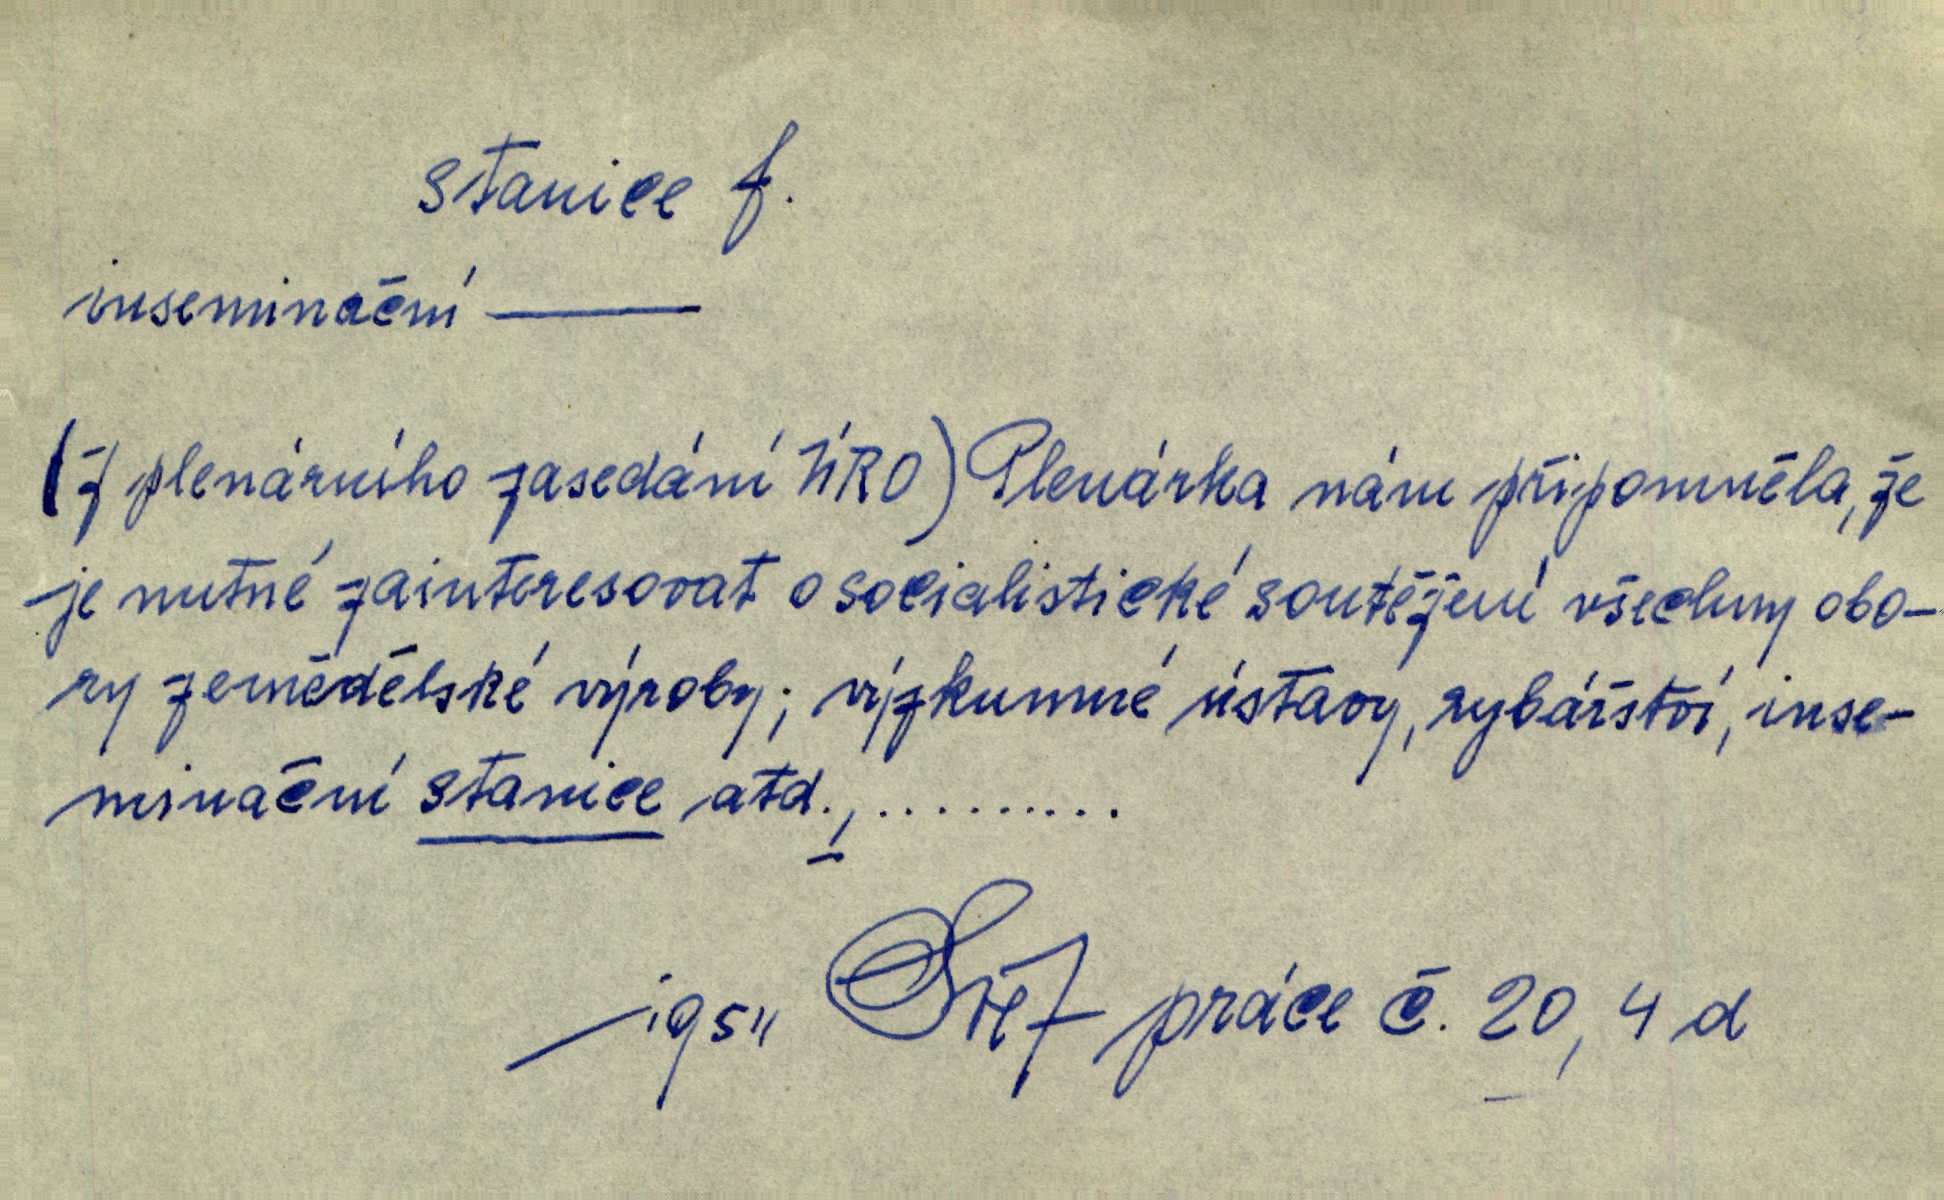 stanice f.
inseminační ———
(Z plenárního zasedání ÚRO) Plenárka nám připomněla, že
je nutné zainteresovat o socialistické soutěžení všechny obo-
ry zemědělské výroby; výzkumné ústavy, rybářství, inse-
minační stanice atd., ..........
Svět práce č. 20, 4 d